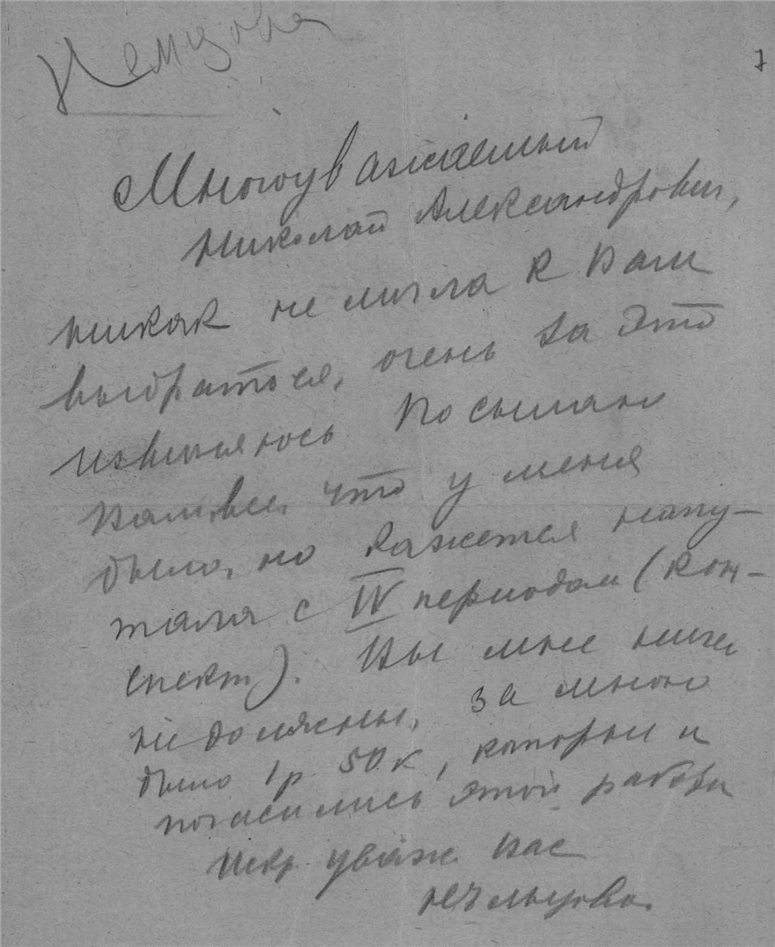 7
Многоуважаемый
Николай Александрович,
никак не могла к Вам
выбраться, очень за это
извиняюсь Посылаю
Вам все, что у меня
было, но кажется напу-
тала с IV периодом (кон-
спект). Вы мне ниче
не должны, за мною
было 1 р 50 к, которые и
погасились этой работы
Искр. уваж. Вас